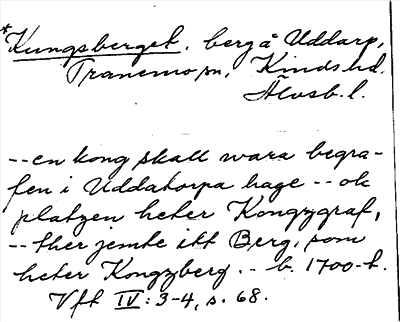 *Kungsberget, berg å Uddarp,
Tranemo sn, Kinds hd.
Älvsb. l.
-- en kong skall wara begra-
fen i Uddatorpa hage -- ok
platzen heter Kongzgraf,
-- ther jemte itt Berg, som
heter Kongzberg. -- b. 1700-t.
Vft IV: 3-4, s. 68.